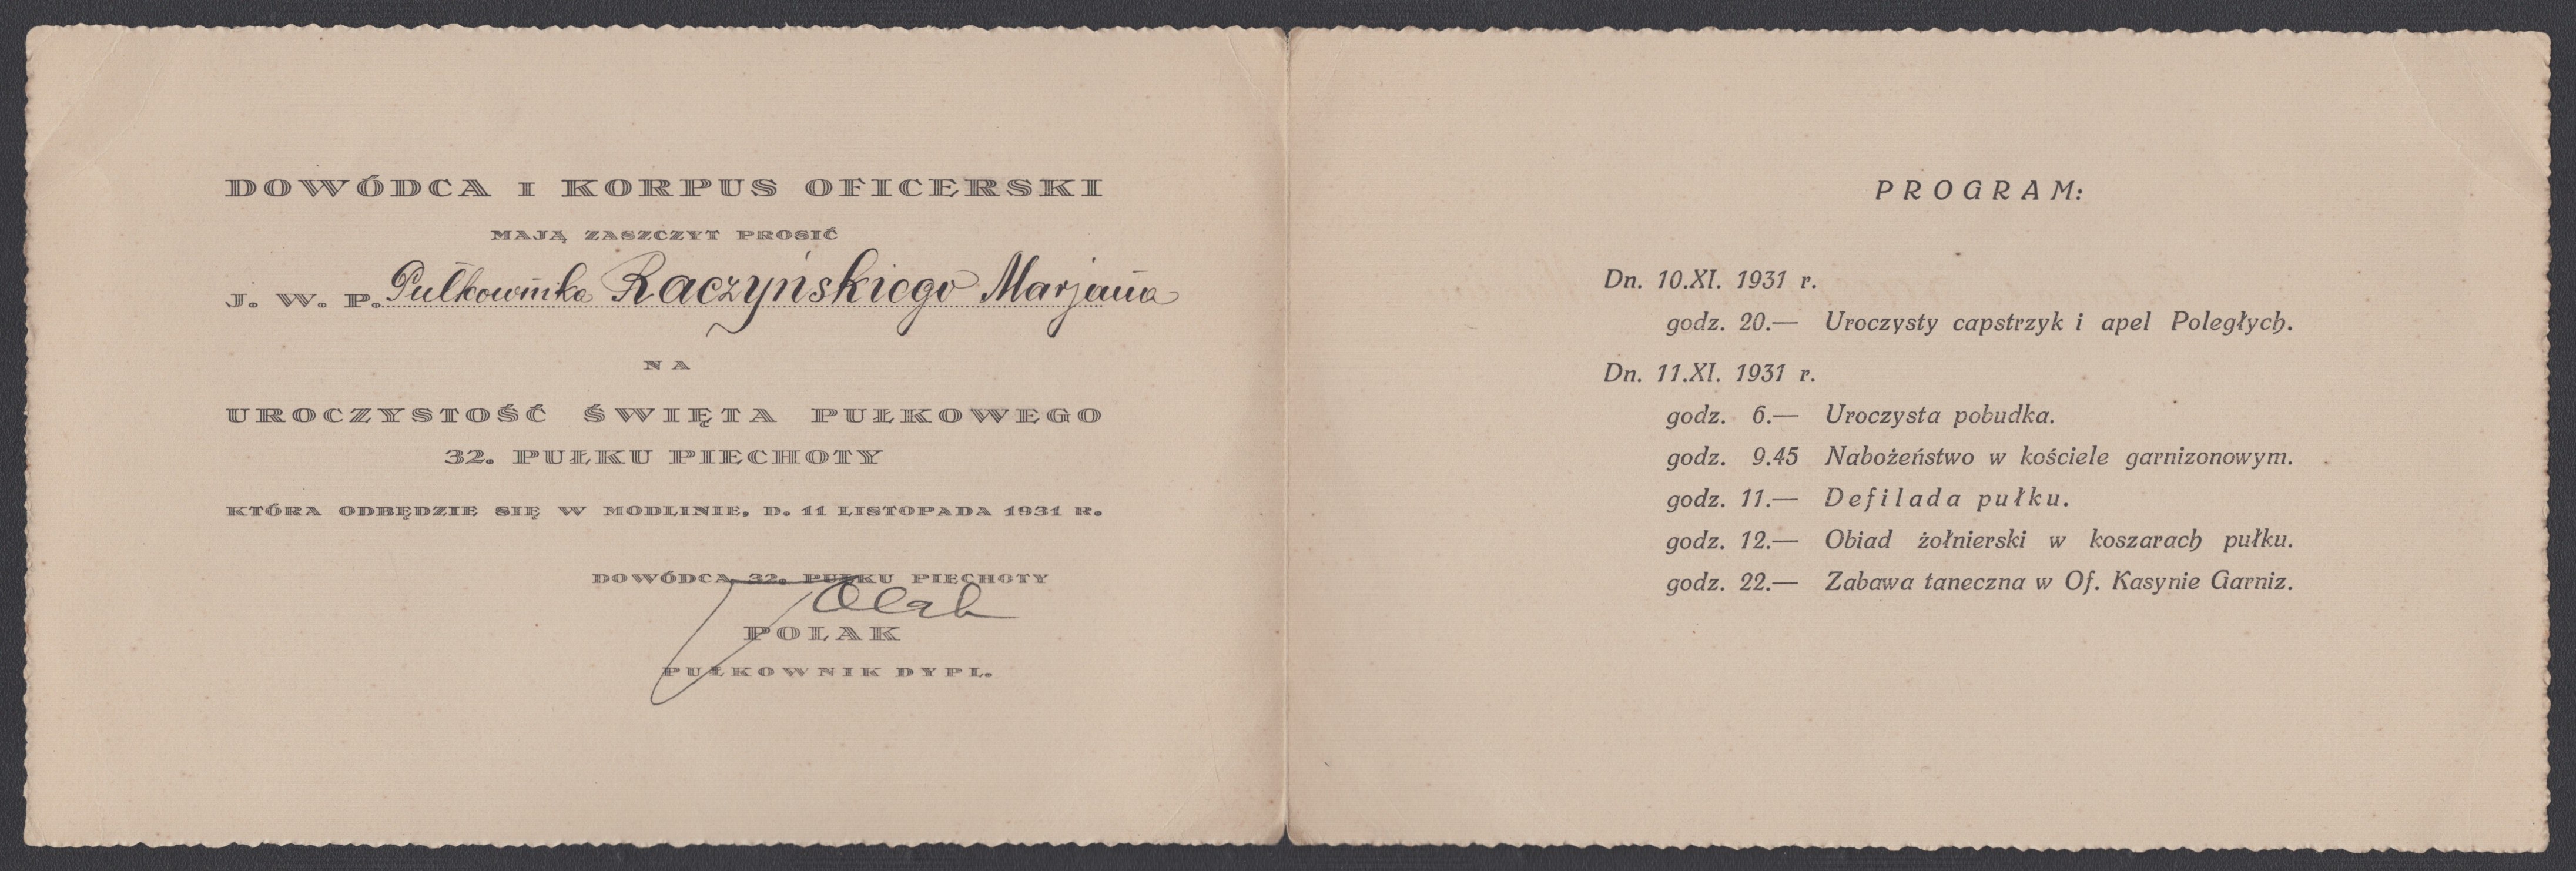 DOWÓDCA I KORPUS OFICERSKI
MAJĄ ZASZCZYT PROSIĆ
J. W. P. Pułkownika Raczyńskiego Marjana
NA
UROCZYSTOŚĆ ŚWIĘTA PUŁKOWEGO
32. PUŁKU PIECHOTY
KTÓRA ODBĘDZIE SIĘ W MODLINIE, D. 11 LISTOPADA 1931 R.
DOWÓDCA 32. PUŁKU PIECHOTY
Polak
POLAK
PUŁKOWNIK DYPL.
PROGRAM:
Dn. 10.XI. 1931 r.
godz. 20.— Uroczysty capstrzyk i apel Poległych.
Dn. 11.XI. 1931 r.
godz. 6.— Uroczysta pobudka.
godz. 9.45 Nabożeństwo w kościele garnizonowym.
godz. 11.— Defilada pułku.
godz. 12.— Obiad żołnierski w koszarach pułku.
godz. 22.— Zabawa taneczna w Of. Kasynie Garniz.